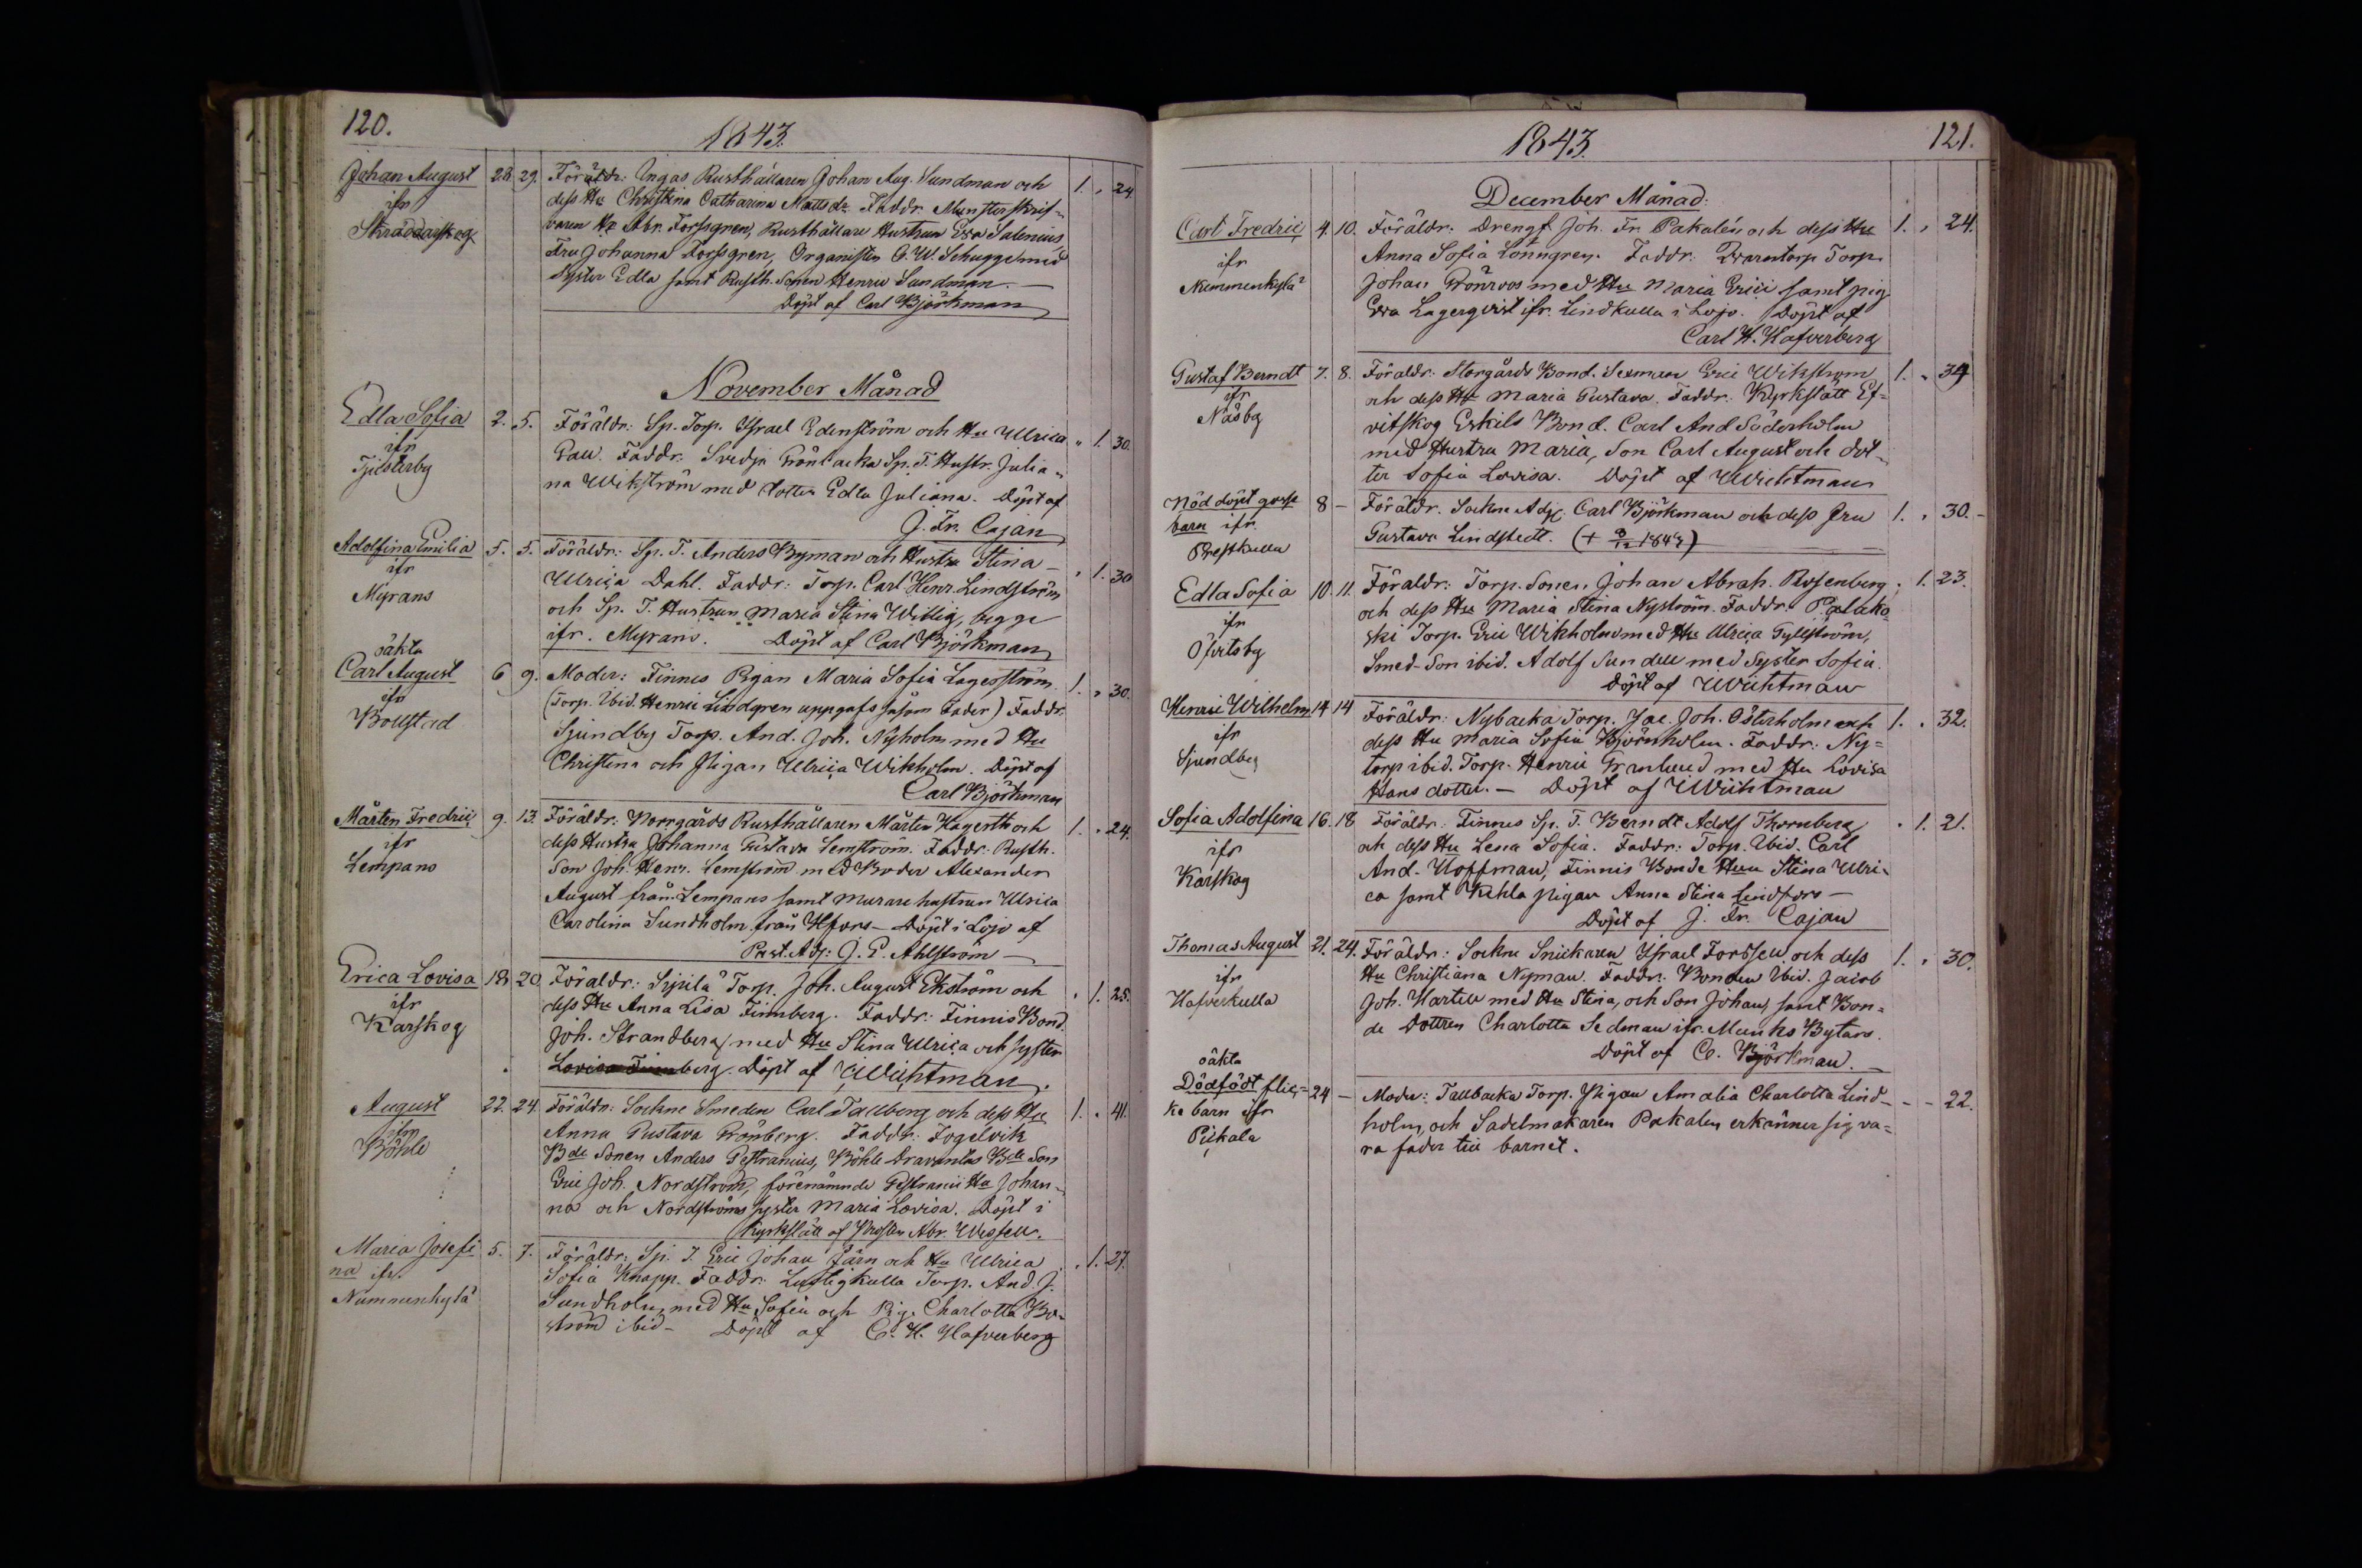 120.
1843.
Johan August 28. 29. Föräldr: Ingas Rusthållaren Johan Aug. Sundman och 1. " 24.
ifr dess Hu Christina Catharina Mattsdr. Faddr. Mönsterskrif-
Skräddarskog varen Hr Abr. Forssgren, Rusthållare Hustrun Eva Salenius,
Fru Johanna Forssgren, Organisten G. W. Schugge med
Syster Edla samt Rusth. Sonen Henric Sundman. —
Döpt af Carl Björkman
November Månad
Edla Sofia 2. 5. Föräldr: Sp. Torp. Israel Edenström och Hu Ulrica " 1. 30.
ifr Faddr. Svedja Grönbacka Sp. T. Hustr. Julia-
Tjusterby na Wikström med dotter Edla Juliana. Döpt af
J. Fr. Cajan
Adolfina Emilia 5. 5. Föräldr: Sp. T. Anders Byman och Hustru Stina " 1. 30
ifr Ulrica Dahl. Faddr: Torp. Carl Henr. Lindström
Myrans och Sp. T. Hustrun Maria Stina Wittig, begge
ifr. Myrans. Döpt af Carl Björkman
oäkta
Carl August 6 9. Moder: Finnes Pigan Maria Sofia Lagerström. 1. " 30.
ifr (Torp. Ibid. Henric Lindgren uppgafs såsom Fader) Faddr.
Bollstad Sjundby Torp. And. Joh. Nyholm med Hu
Christina och Pigan Ulrica Wikholm. Döpt af
Carl Björkman
Mårten Fredric 9. 13. Föräldr: Norrgårds Rusthållaren Mårten Hagerth och 1. " 24.
ifr dess Hustru Johanna Gustava Lemström. Faddr: Rusth.
Lempans Son Joh. Henr. Lemström med Broder Alexander
August från Lempans samt Murare hustrun Ulrica
Carolina Sundholm från Hfors — Döpt i Lojo af
Past. Adj: G. E. Ahlström —
Erica Lovisa 18 20 Föräldr: Sipilä Torp. Joh. August Ekström och " 1. 25.
ifr dess Hu Anna Lisa Finnberg. Faddr: Finnis Bond.
Karskog Joh. Strandberg med Hu Stina Ulrica och syster
Lovisa Finnberg. Döpt af Wichtman.
August 22. 24 Föräldr: Sockne Smeden Carl Tallberg och dess Hu 1. " 41.
ifr Anna Gustava Grönberg. Faddr: Fogelvik
Böhle Bde Sonen Anders Gestranius, Böhle Dravantas Bde Son
Eric Joh. Nordström, förenämnde Gestranii Hu Johan-
na och Nordströms syster Maria Lovisa. Döpt i
Kyrkslätt af Prosten Abr. Wessell.
Maria Josefi 5. 7. Föräldr: Sp. T. Eric Johan Järn och Hu Ulrica " 1. 27.
na ifr. Sofia Knapp. Faddr: Lustigkulla Torp. And. J.
Nummenkylä Sundholm med Hu Sofia och Pig. Charlotta Bo-
ström ibid — Döpt af C. H. Hafverberg
1843.
121.
December Månad.
Carl Fredric 4. 10. Föräldr: Dreng. Joh. Fr. Pakalén och dess Hu 1. " 24.
ifr Anna Sofia Lönngren. Faddr: Qvarntorp Torp.
Nummenkylä Johan Grönroos med Hu Maria Erici samt pig.
Eva Lagerqvist ifr. Lindkulla i Lojo. Döpt af
Carl H. Hafverberg
Gustaf Berndt 7. 8. Föräldr: Storgårds Bond. Sexman Eric Wikström 1. " 34
ifr och dess Hu Maria Gustava. Faddr: Kyrkslätt Ef-
Näsby vitskog Eskils Bond. Carl And Söderholm
med Hustru Maria, Son Carl August och dot-
ter Sofia Lovisa. Döpt af Wichtman
Nöddöpt gosse 8 — Föräldr. Sockne Adj. Carl Björkman och dess Fru 1. " 30. —
barn ifr. Gustava Lindstedt. (+ 9/12 1843)
Prestkulla
Edla Sofia 10. 11. Föräldr: Torp. Sonen Johan Abrah. Rosenberg " 1. 23.
ifr och dess Hu Maria Stina Nyström. Faddr. Palako
Öfvitsby ski Torp. Eric Wikholm med Hu Ulrica Gyllström,
Smed-Son ibid. Adolf Sundell med Syster Sofia.
Döpt af Wichtman
Henric Wilhelm 14 14 Föräldr: Nybacka Torp. Jac. Joh. Österholm och 1. " 32.
ifr dess Hu Maria Sofia Björnholm. Faddr: Ny-
Sjundby torp ibid. Torp. Henric Granlund med Hu Lovisa
Hansdotter. — Döpt af Wichtman
Sofia Adolfina 16. 18 Föräldr: Finnes Sp. T. Berndt Adolf Thornberg " 1. 21.
ifr och dess Hu Lena Sofia. Faddr: Torp. Ibid. Carl
Karskog And. Hoffman, Finnis Bonde Hu Stina Ulri-
ca samt Kehla pigan Anna Stina Lindfors —
Döpt af J. Fr. Cajan
Thomas August 21. 24. Föräldr: Sockne Snickaren Israel Forssell och dess 1. " 30.
ifr Hu Christiana Nyman. Faddr: Bonden Ibid. Jacob
Hafverkulla Joh. Hartell med Hu Stina, och Son Johan, samt Bon-
de Dottren Charlotta Sedman ifr. Munks Bytars.
Döpt af C. Björkman. —
oäkta
Dödfödt flic- 24 — Moder: Tallbacka Torp. Pigan Amalia Charlotta Lind- — — 22.
ke barn ifr holm, och Sadelmakaren Pakalen erkänner sig va-
Pickala ra fader till barnet.